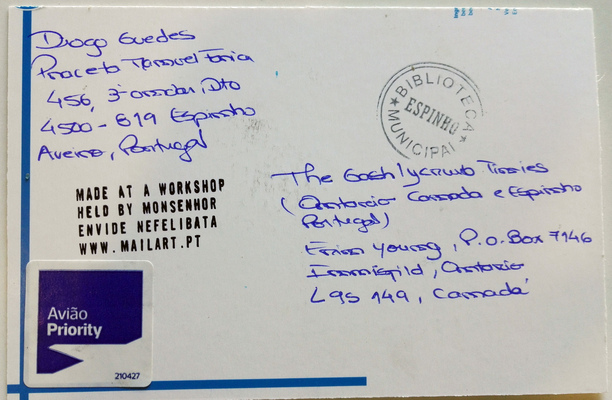 Diogo Guedes
Praceta Manuel Faria
456, 3º andar, Dto
4500-819 Espinho
Aveiro, Portugal
MADE AT A WORKSHOP
HELD BY MONSENHOR
ENVIDE NEFELIBATA
WWW.MAILART.PT
Avião
Priority
210427
BIBLIOTECA
ESPINHO
MUNICIPAL
The Gashlycrumb Tinies
(Ontario Canada e Espinho
Portugal)
Young, P.O. Box 7146
Innisfild, Ontario
L9S 149, Canadá